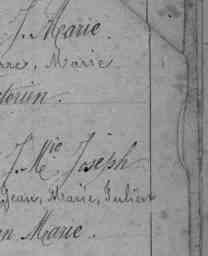 J. Marie.
rre, Marie
torin.
J. Mie Joseph
Jean, Marie, Julien
en Marie.